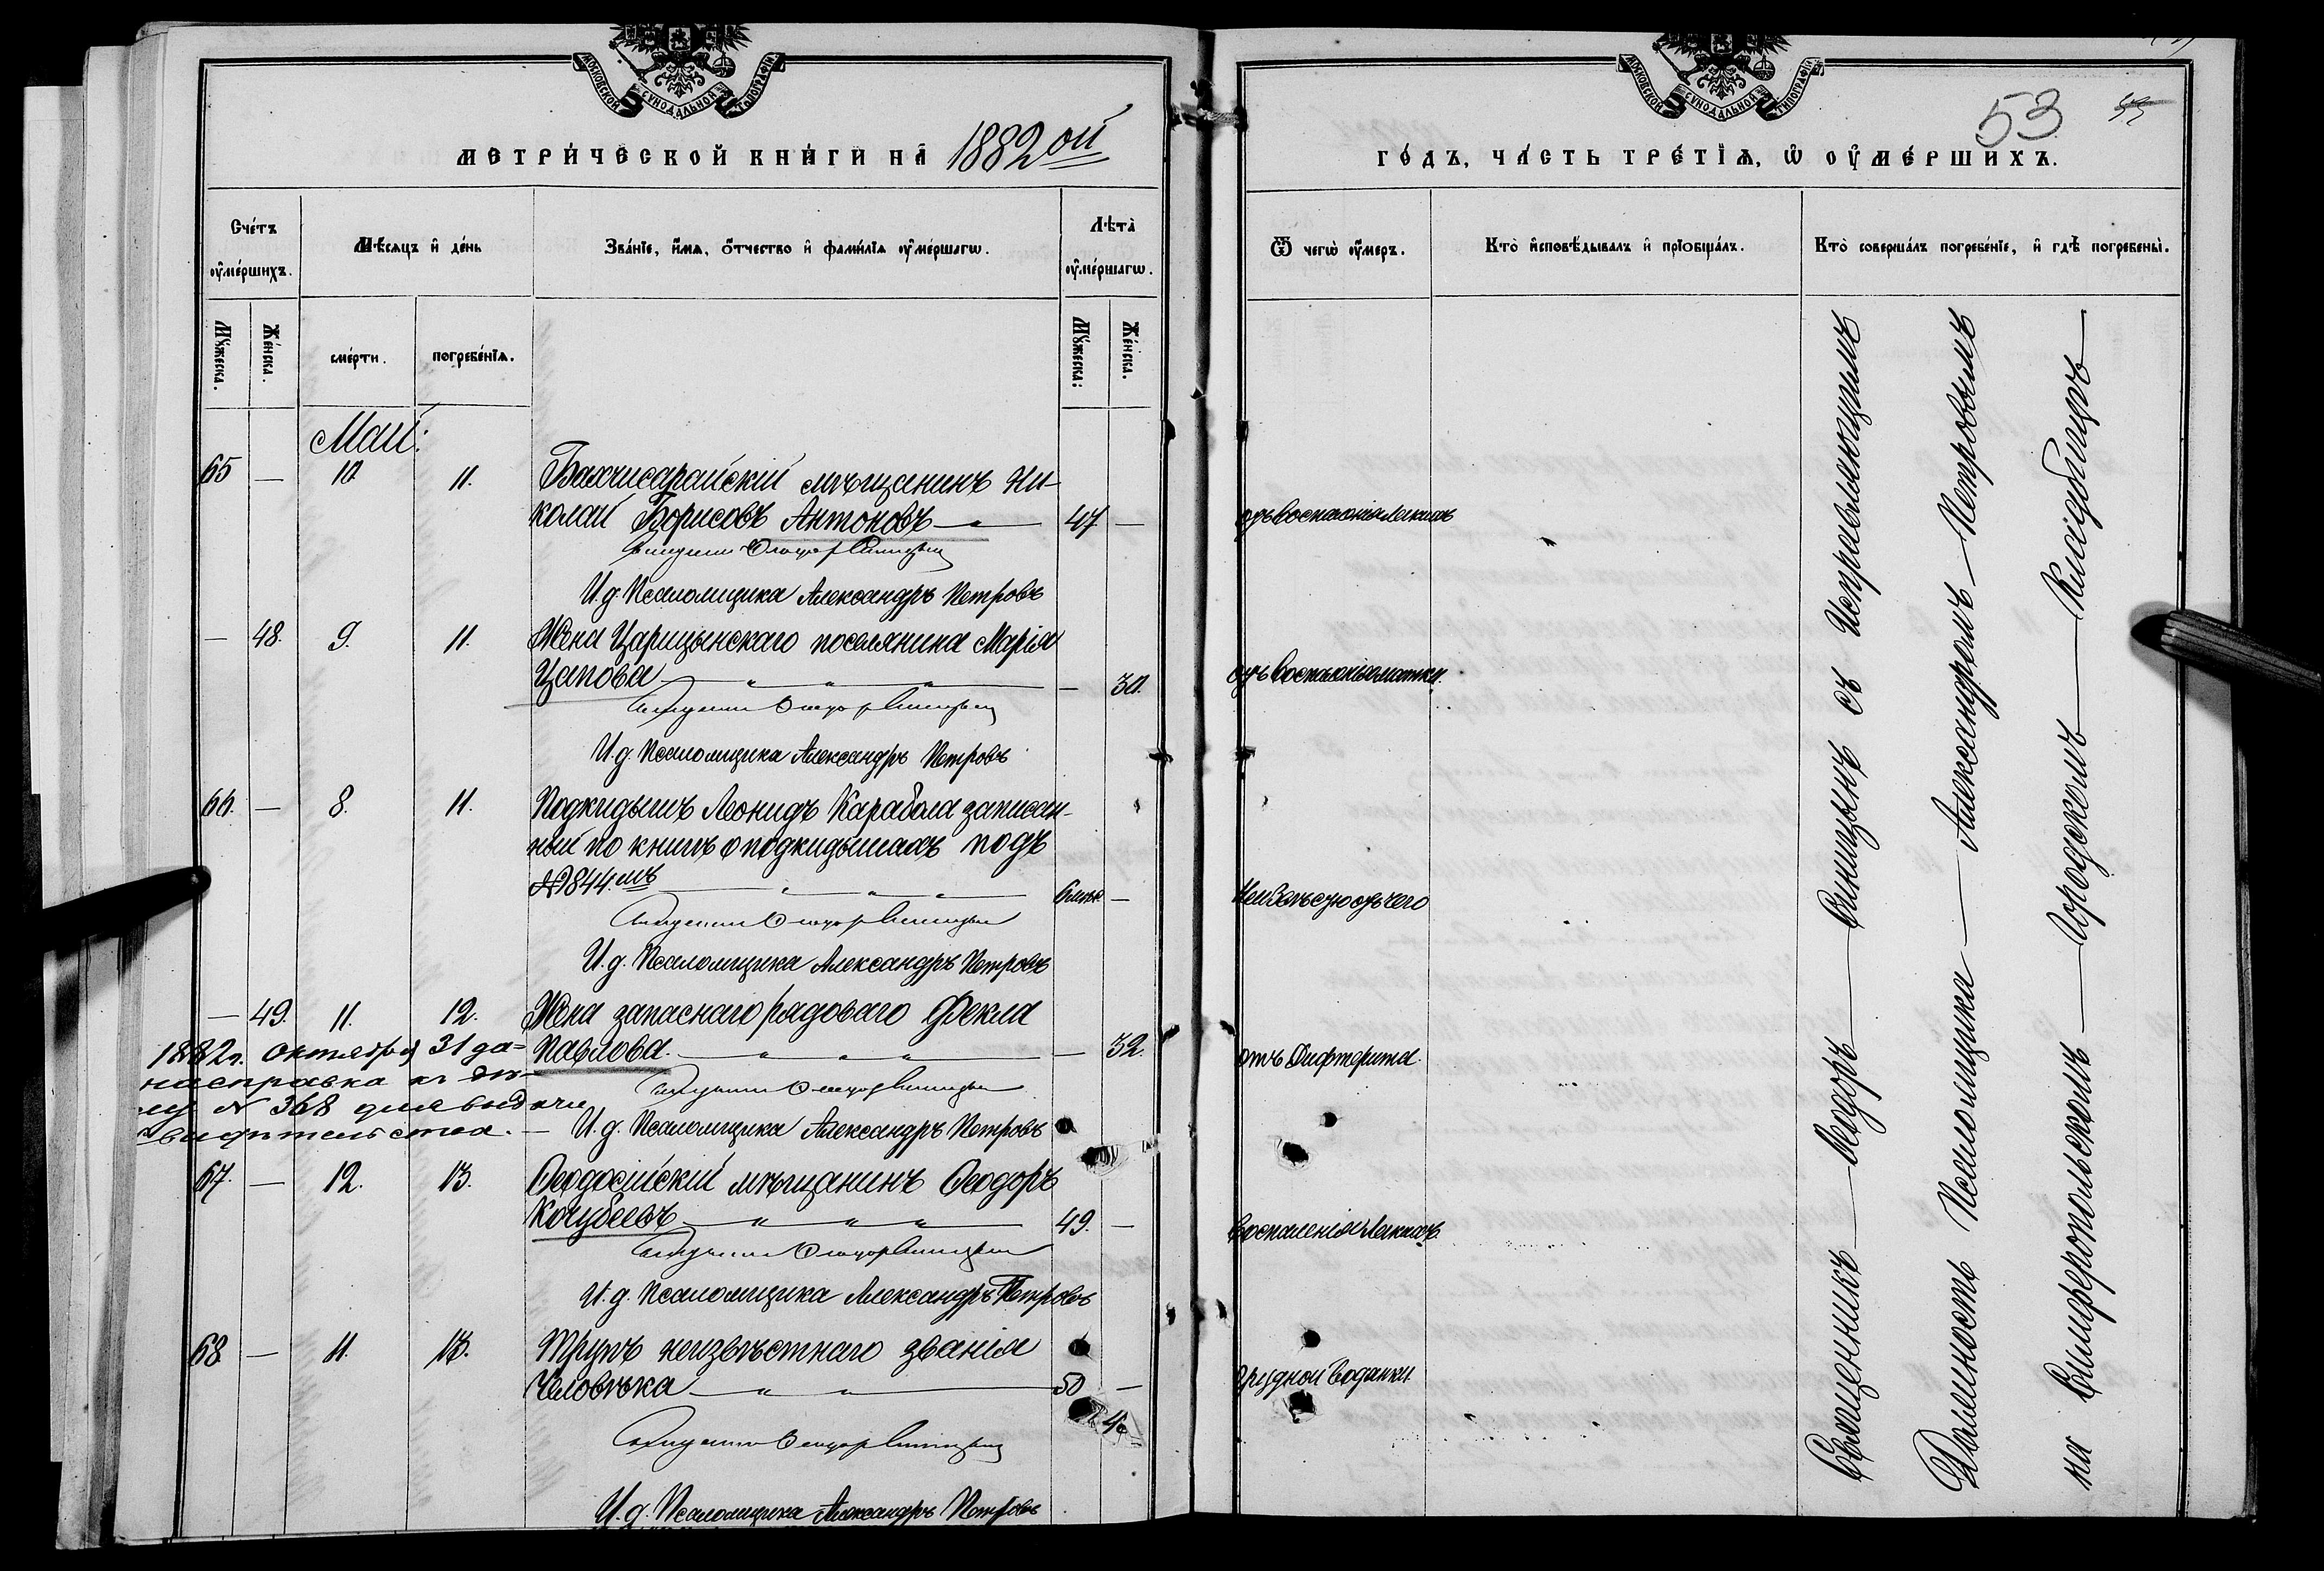 МОСКОВСКОЙ СѴНОДАЛЬНОЙ ТИПОГРАФІИ
МЕТРИ́ЧЕСКОЙ КНИ́ГИ НА̀ 1882ой
Сче́тъ ᲂу҆ме́ршихъ.
Мѣ́сяцъ и҆ де́нь
Зва́нїе, и҆́мѧ, ѻ҆́тчество и҆ фами́лїѧ ᲂу҆ме́ршагѡ.
Лѣ́та ᲂу҆ме́ршагѡ.
Мꙋ́жеска.
Же́нска.
сме́рти.
погребе́нїѧ.
Мꙋ́жеска:
Же́нска.
Май:
65 — 10 11. Бахчисарайскій мѣщанинъ Ни-
колай Борисовъ Антоновъ — 47 —
И.д. Псаломщика Александръ Петровъ
— 48. 9. 11. Жена Царицынскаго поселянина Марія
Цапова — " " " — 30.
И.д. Псаломщика Александръ Петровъ
66. — 8. 11. Подкидышъ Леонидъ Карабала записан-
ный по книгѣ о подкидышахъ подъ
№844.мъ — " " " — —
И.д. Псаломщика Александръ Петровъ
— 49. 11. 12. Жена запаснаго рядоваго Фекла
Павлова. — " " " — 32.
1882г. октября 31 да-
на справка къ дѣ-
лу N 368 для выдачи
свидѣтельства. —
И.д. Псаломщика Александръ Петровъ
67. — 12. 13. Ѳеодосійскій мѣщанинъ Ѳеодоръ
Кочубеевъ — " " " — 49. —
И.д. Псаломщика Александръ Петровъ
68 — 11. 13. Трупъ неизвѣстнаго званія
Человѣка — " " — 50 —
И.д. Псаломщика Александръ Петровъ
МОСКОВСКОЙ СѴНОДАЛЬНОЙ ТИПОГРАФІИ
53
ГО́ДЪ, ЧА́СТЬ ТРЕ́ТЇѦ, Ѡ҆ ОУ҆МЕ́РШИХЪ.
Ѿ чегѡ̀ ᲂу҆́меръ.
Кто̀ и҆сповѣ́дывалъ и҆ прїѡбща́лъ.
Кто̀ соверша́лъ погребе́нїе, и҆ гдѣ̀ погребены̀.
отъ Воспаленія Легкихъ
отъ Воспаленія матки.
Неизвѣстно отъ чего
отъ Дифтерита.
Воспаленія Легкихъ.
Грудной Водянки.
Священникъ — Ѳеодоръ — Синицынъ съ Исправляющимъ
Должность Псаломщика — Александромъ — Петровымъ
на Симферопольскомъ — Городскомъ — Кладбищѣ —